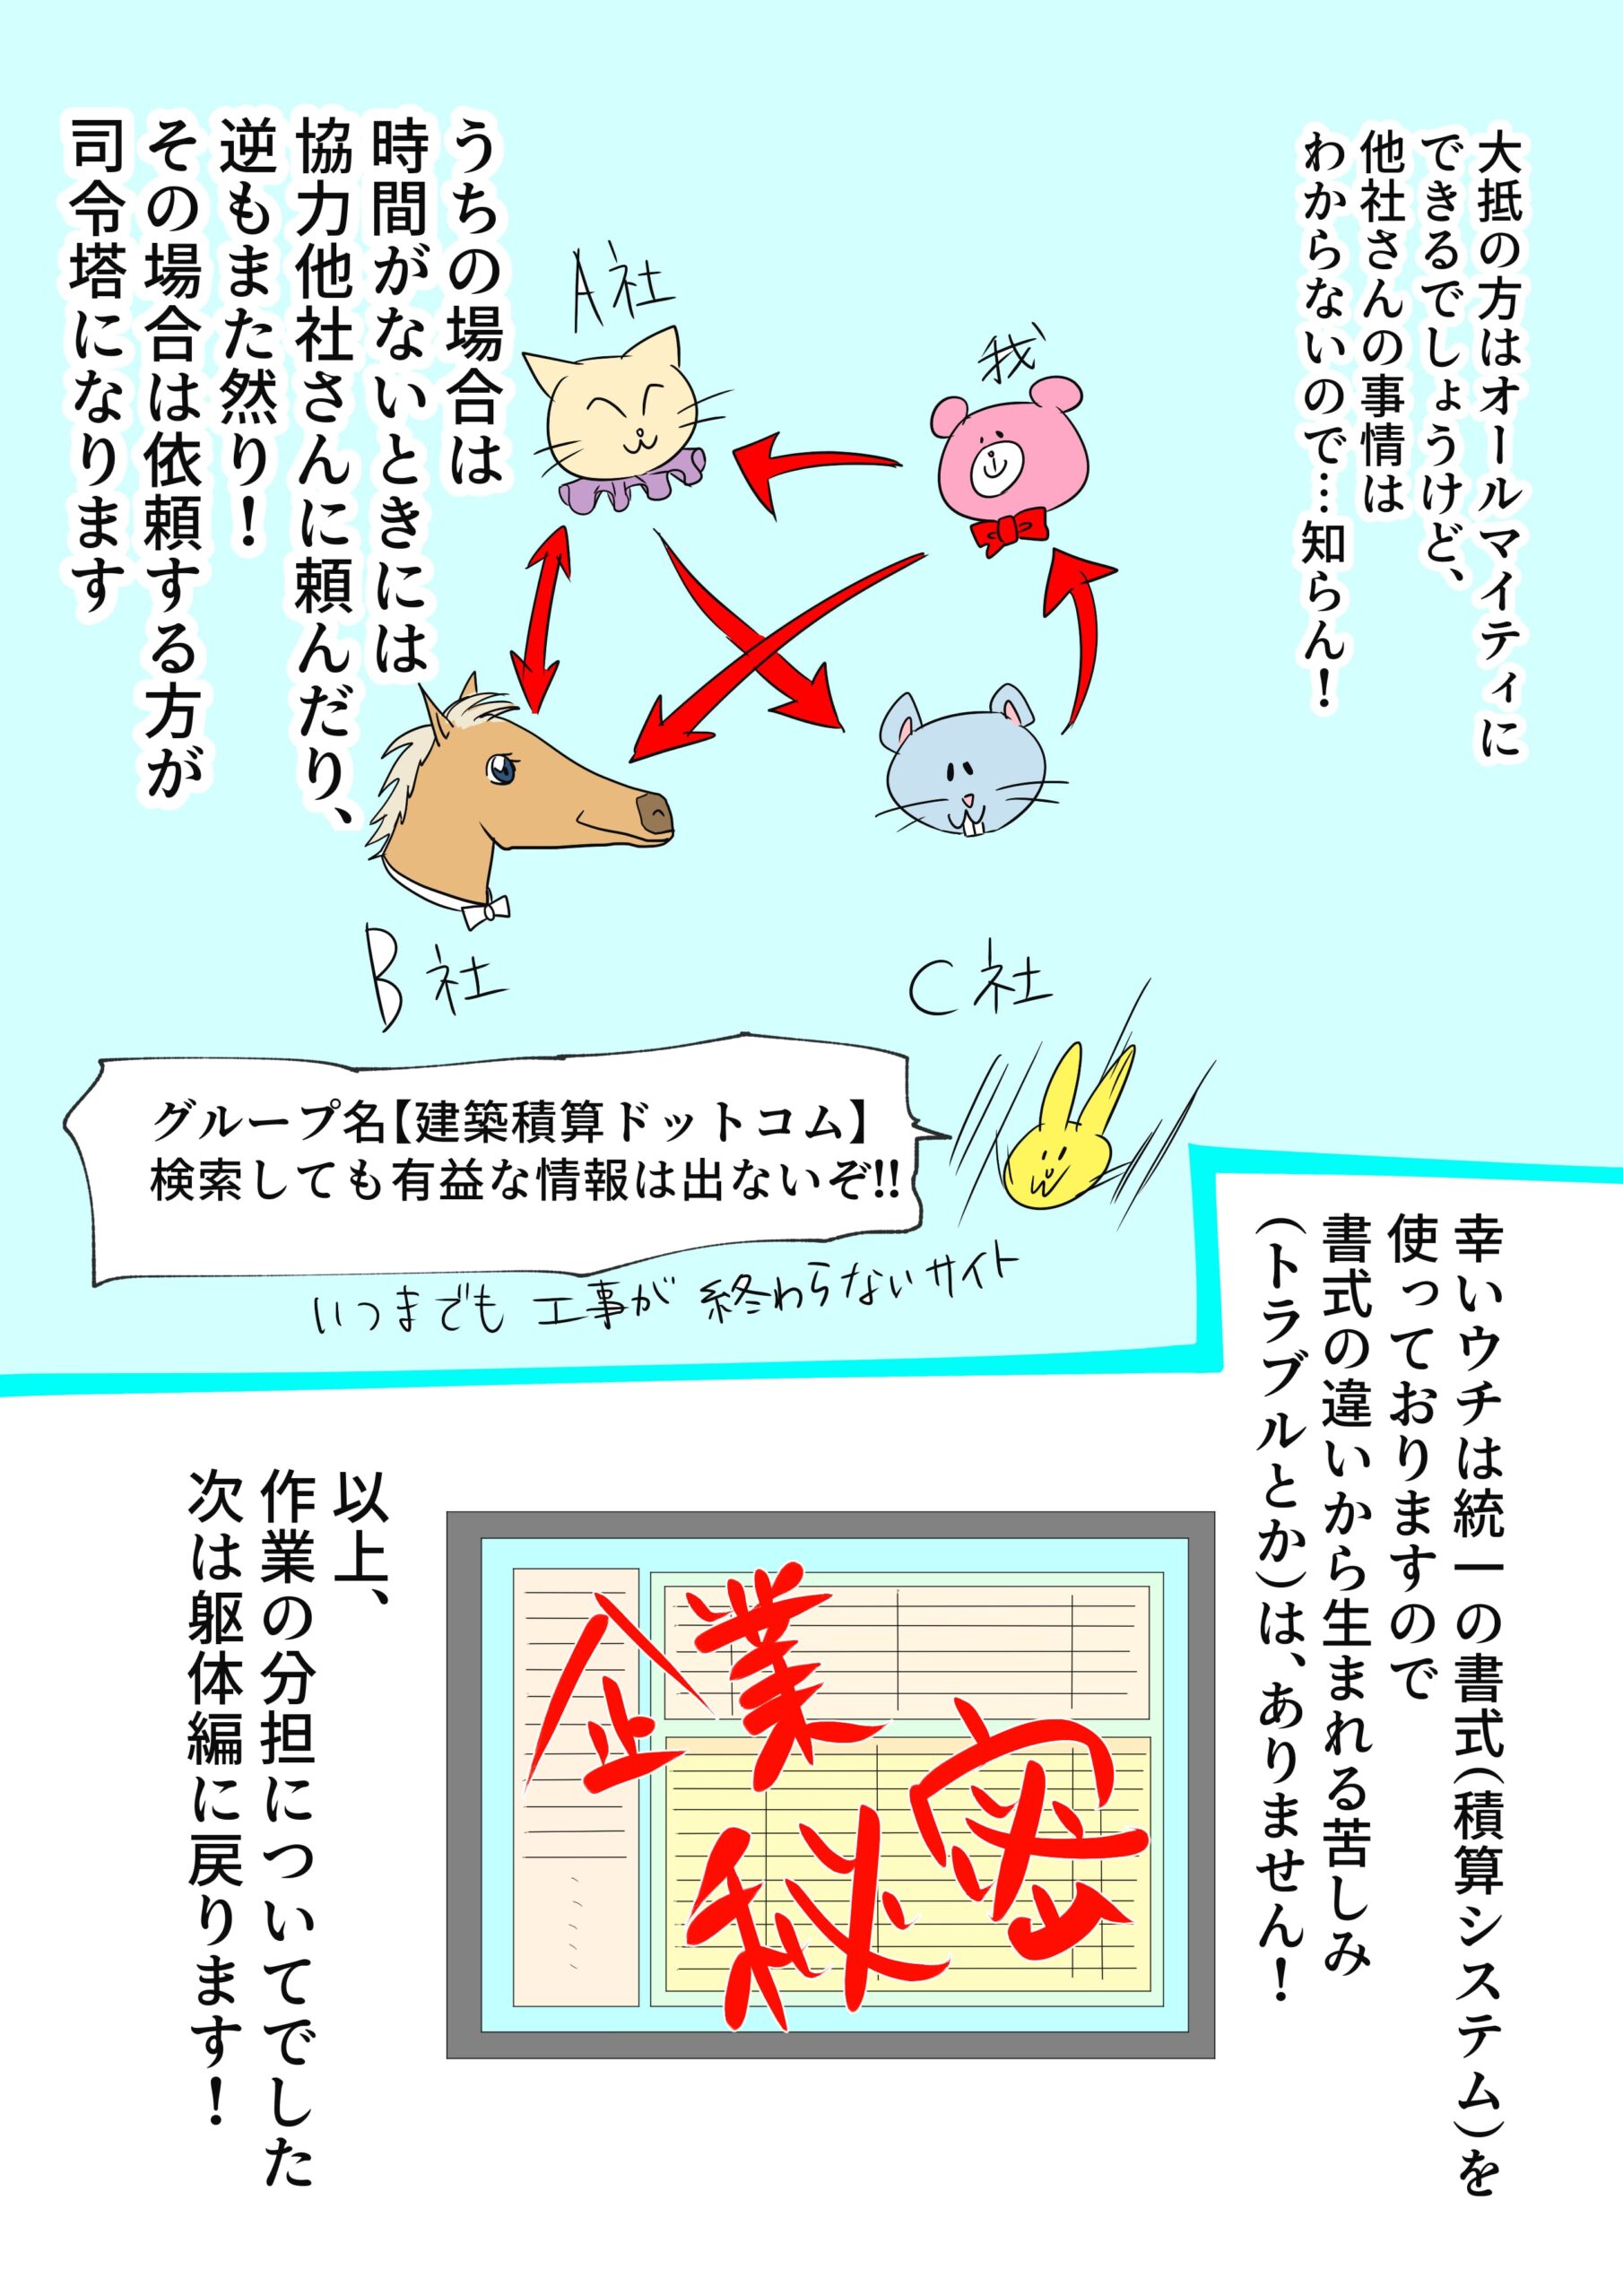 大抵の方はオールマイティに
できるでしょうけど、
他社さんの事情は
わからないので…知らん！
我
A社
うちの場合は
時間がないときには
協力他社さんに頼んだり、
逆もまた然り！
その場合は依頼する方が
司令塔になります
B社
C社
グループ名【建築積算ドットコム】
検索しても有益な情報は出ないぞ!!
いつまでも工事が終わらないサイト
幸いウチは統一の書式（積算システム）を
使っておりますので
書式の違いから生まれる苦しみ
（トラブルとか）は、ありません！
企業
秘密
以上、
作業の分担についてでした
次は躯体編に戻ります！